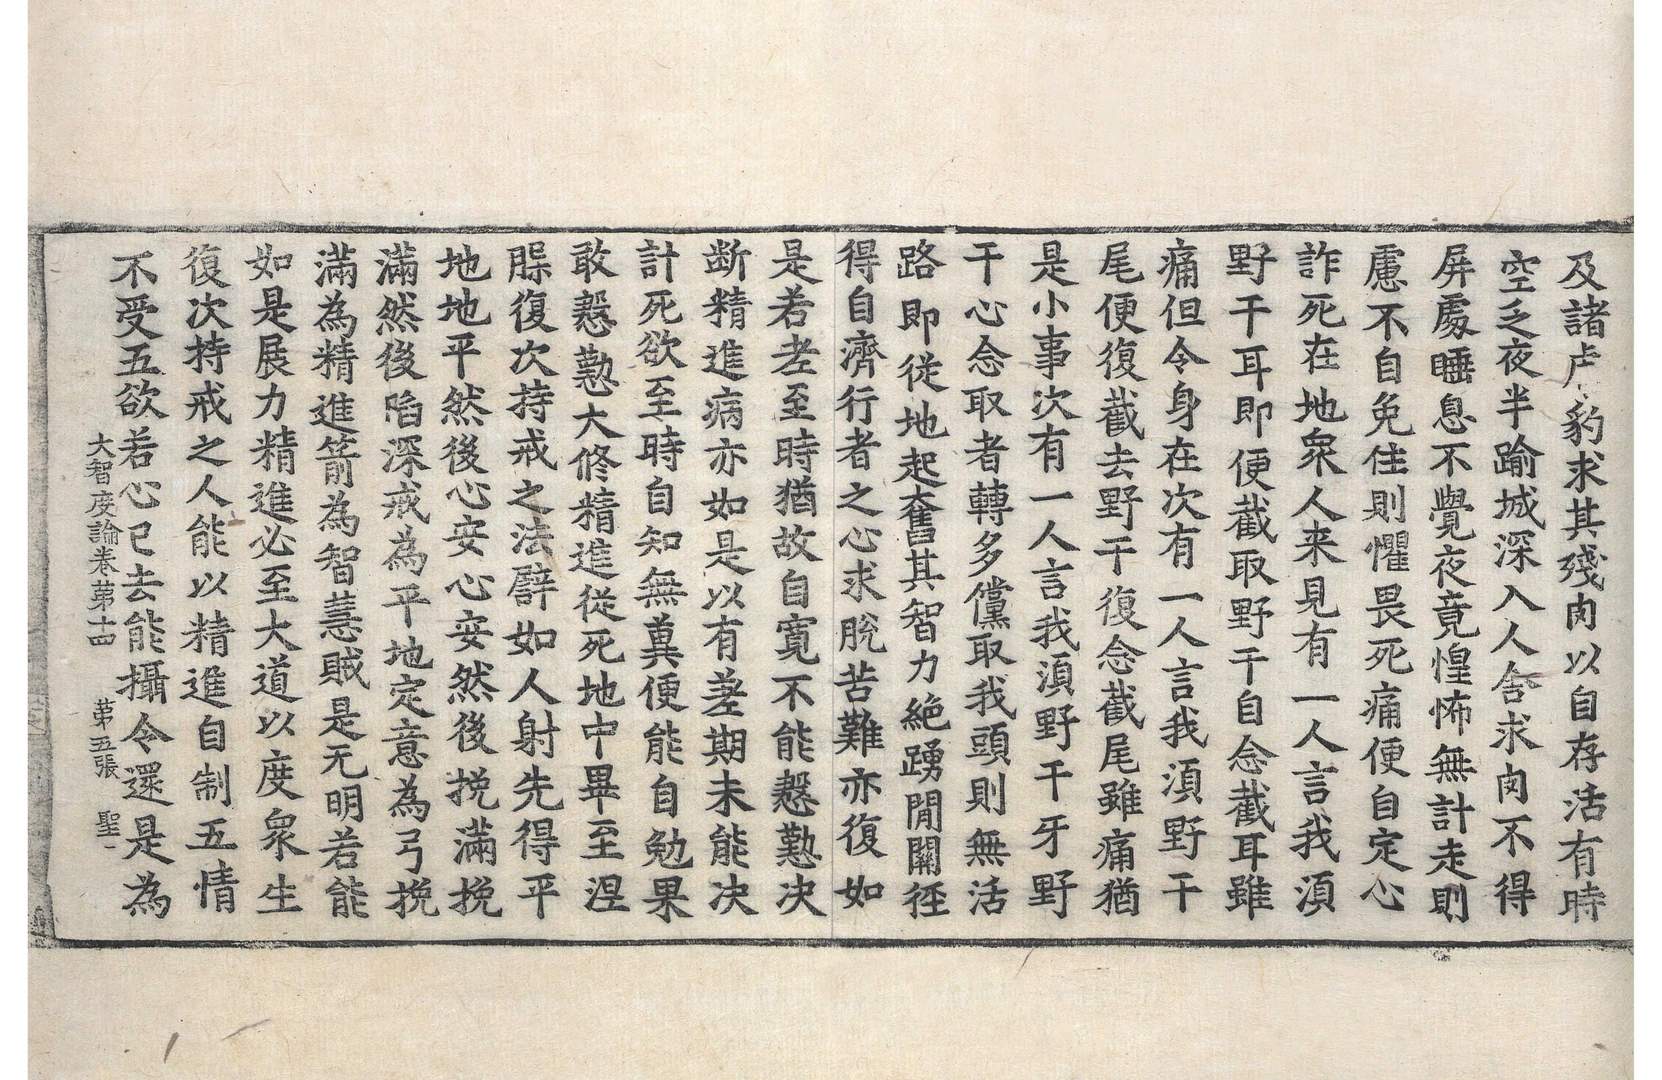 及諸虎豹求其殘肉以自存活有時
空乏夜半踰城深入人舍求肉不得
屏處睡息不覺夜竟惶怖無計走則
慮不自免住則懼畏死痛便自定心
詐死在地衆人来見有一人言我湏
野干耳即便截取野干自念截耳雖
痛但令身在次有一人言我湏野干
尾便復截去野干復念截尾雖痛猶
是小事次有一人言我湏野干牙野
干心念取者轉多儻取我頭則無活
路即從地起奮其智力絶踴閒關徑
得自濟行者之心求脫苦難亦復如
是若老至時猶故自寛不能慇懃决
断精進病亦如是以有差期未能决
計死欲至時自知無兾便能自勉果
敢慇懃大修精進從死地中畢至涅
槃復次持戒之法譬如人射先得平
地地平然後心安心安然後挽滿挽
滿然後陷深戒為平地定意為弓挽
滿為精進箭為智慧賊是无明若能
如是展力精進必至大道以度衆生
復次持戒之人能以精進自制五情
不受五欲若心已去能攝令還是為
大智度論卷第十四 第五張 聖